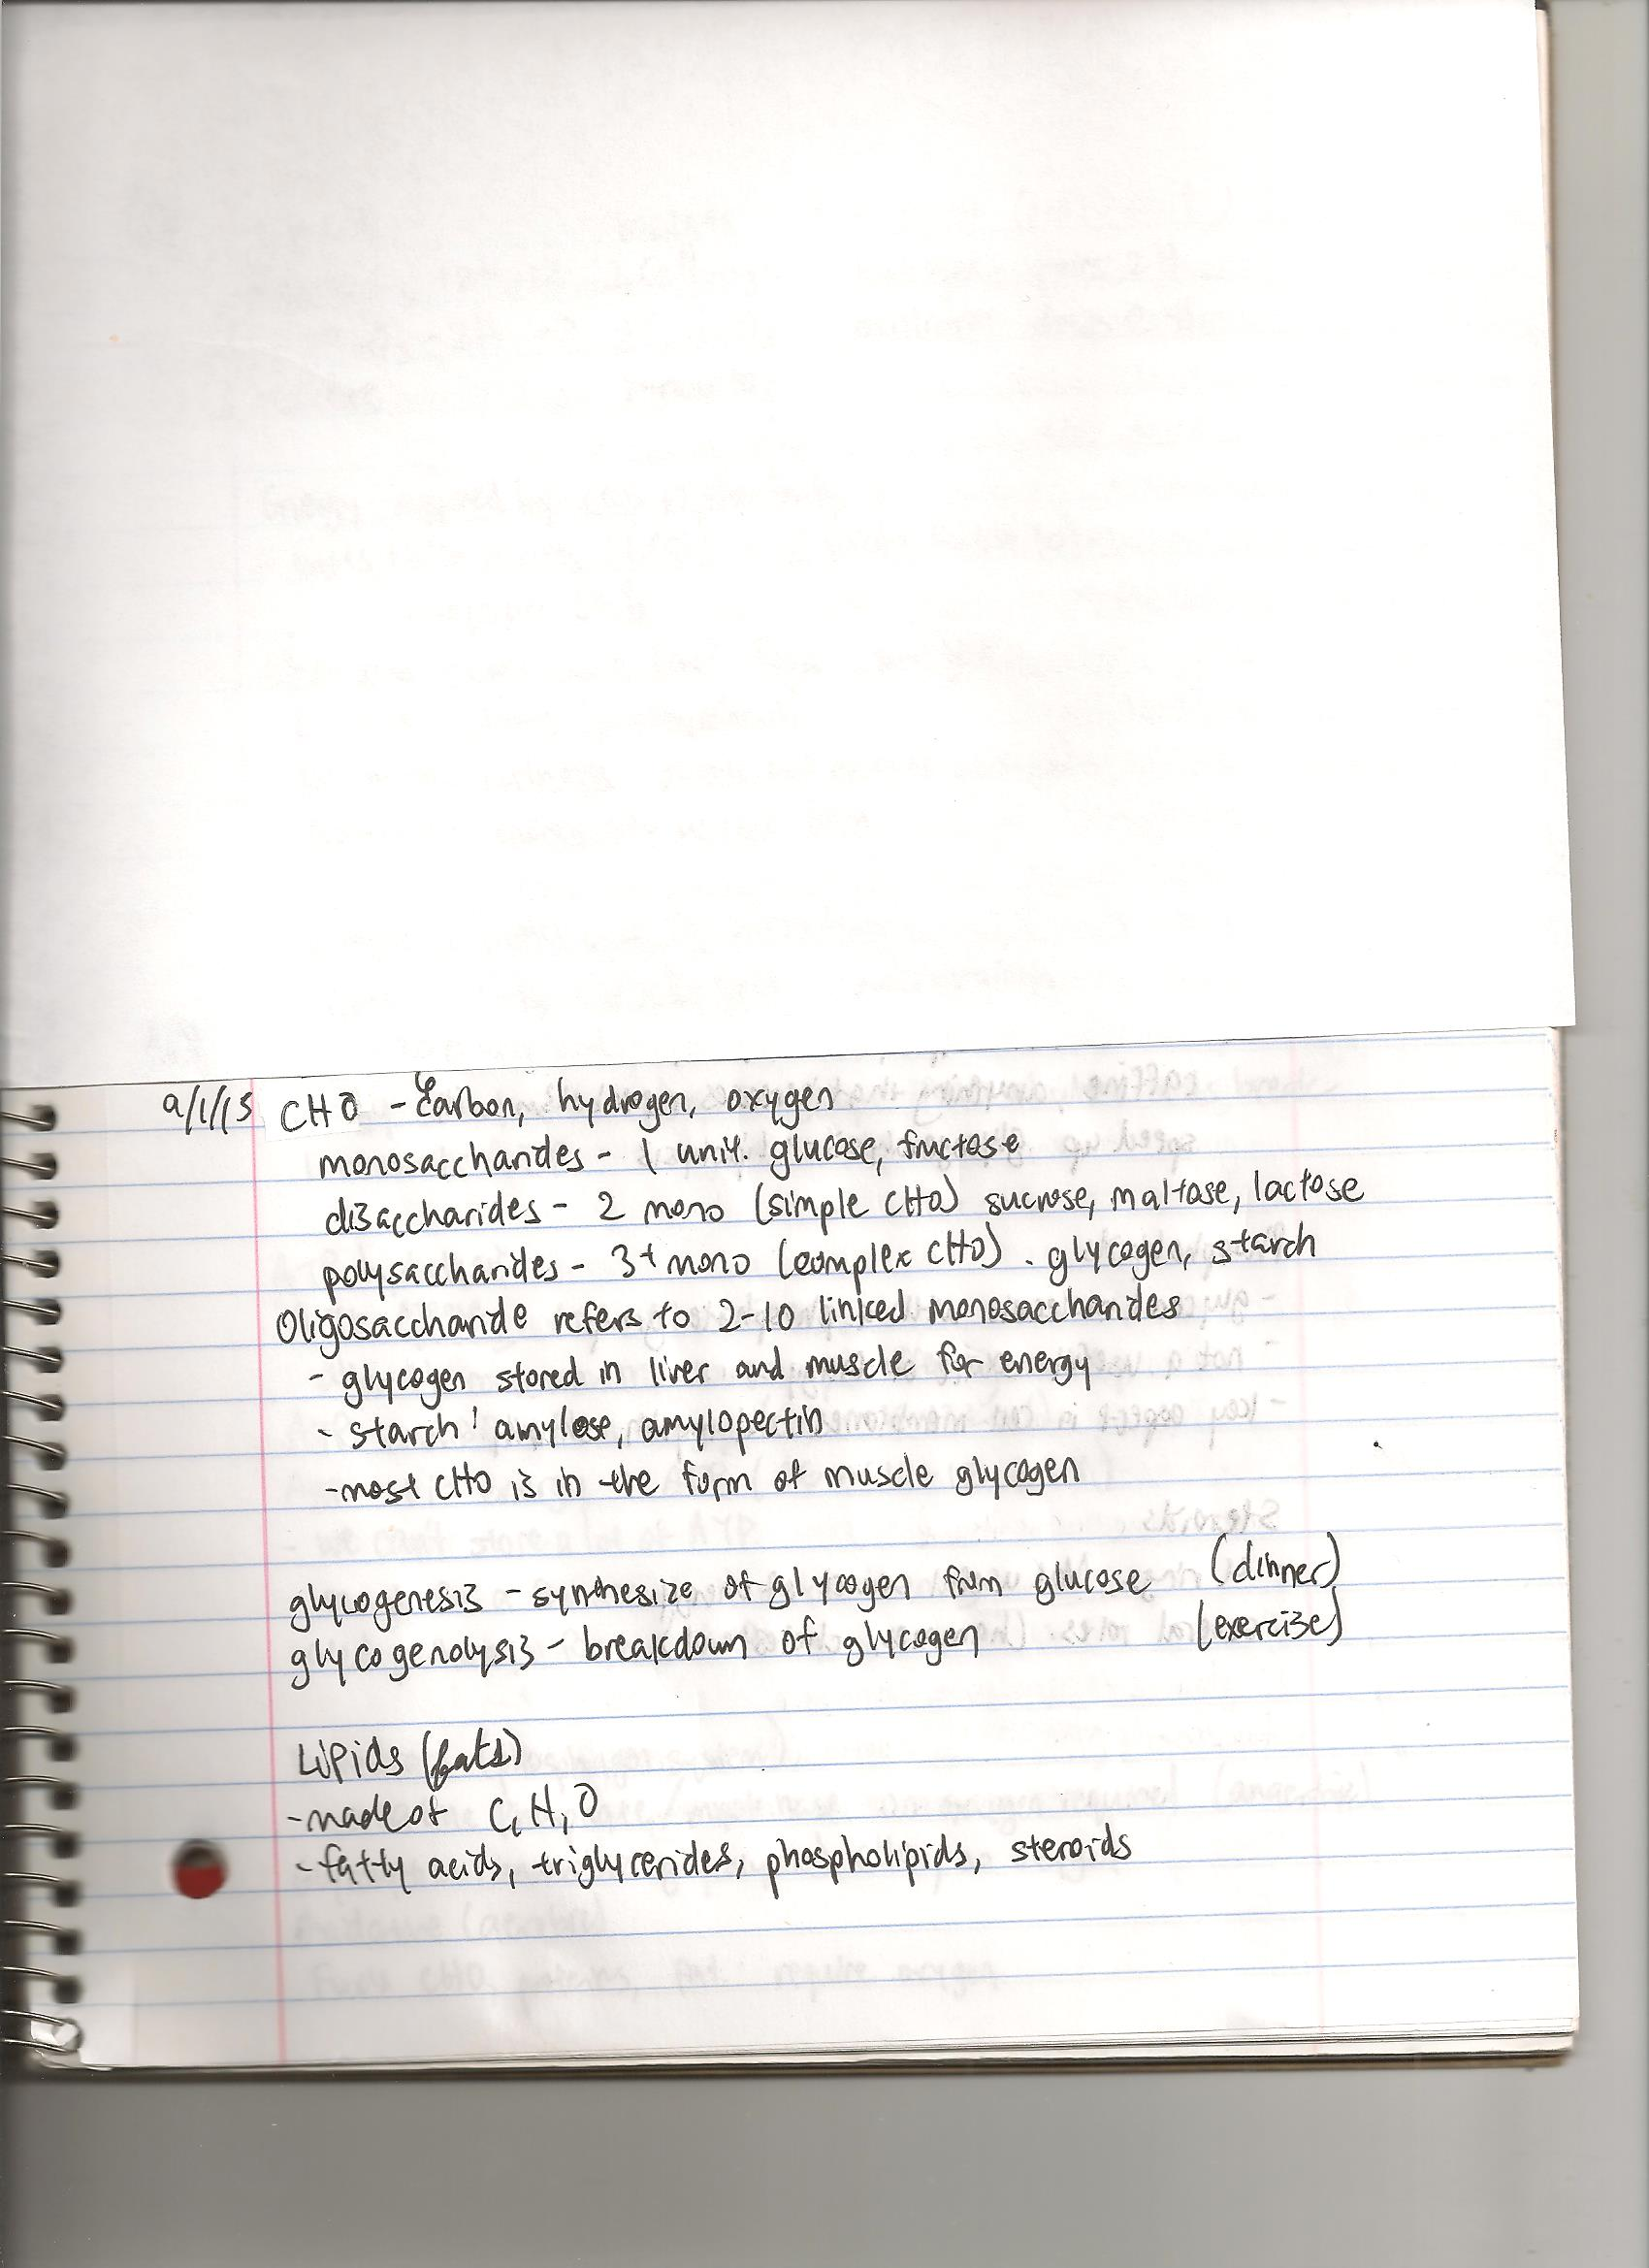 9/1/15 CHO - Carbon, hydrogen, oxygen
monosaccharides - 1 unit. glucose, fructose
disaccharides - 2 mono (simple CHO) sucrose, maltose, lactose
polysaccharides - 3+ mono (complex CHO). glycogen, starch
Oligosaccharide refers to 2-10 linked monosaccharides
- glycogen stored in liver and muscle for energy
- starch: amylose, amylopectin
- most CHO is in the form of muscle glycogen
glycogenesis - synthesize of glycogen from glucose (dinner)
glycogenolysis - breakdown of glycogen (exercise)
Lipids (fats)
- made of C, H, O
- fatty acids, triglycerides, phospholipids, steroids